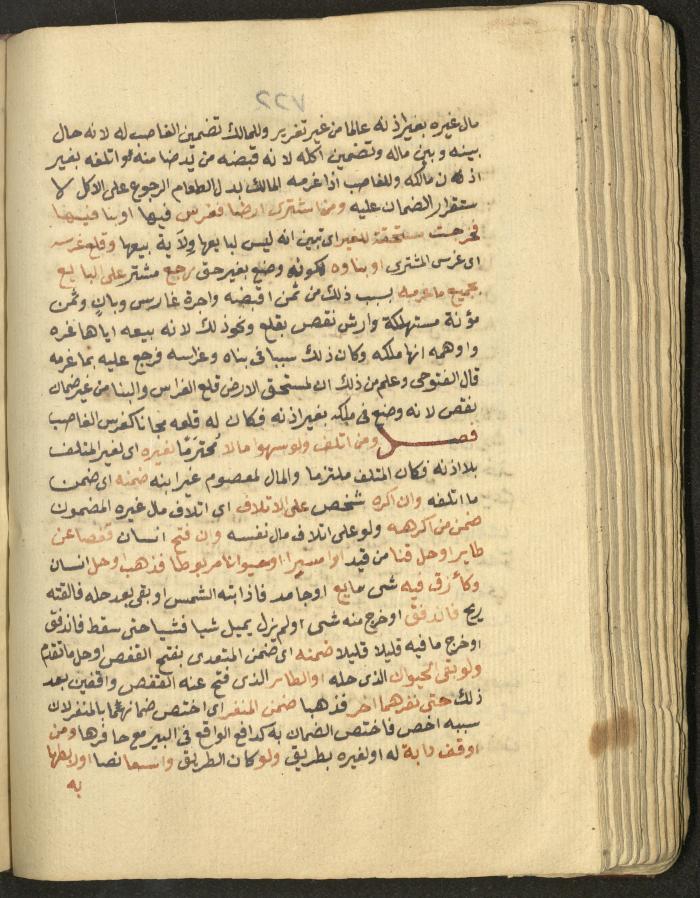 ٧٢٢
مال غيره بغير اذنه عالما من غير تغرير وللمالك تضمين الغاصب له لانه حال
بينه وبين ماله وتضمين اكله لانه قبضه من يد ضامنة فواتلفه بغير
اذن مالكه وللغاصب اذا غرمه المالك بدل الطعام الرجوع على الاكل لا
ستقرار الضمان عليه ومن اشترى ارضا فغرس فيها او بنا فيها
فخرجت مستحقة للغير اى تبين انه ليس لبايعها ولاية بيعها وقلع غرسه
اى غرس المشترى او بناوه لكونه وضع بغير حق رجع مشتر على البايع
بجميع ما غرمه بسبب ذلك من ثمن اقبضه واجرة غارس وبان وثمن
مؤنة مستهلكة وارش نقص بقلع ونحو ذلك لانه بيعه اياها غره
واوهمه انها ملكه وكان ذلك سببا فى بناه وغراسه فرجع عليه بما غرمه
قال الفتوحى وعلم من ذلك ان لمستحق الارض قلع الغراس والبنا من غير ضمان
نقص لانه وضع فى ملكه بغير اذنه فكان له قلعه مجانا كغرس الغاصب
فصل ومن اتلف ولو سهوا مالا محترما لغيره اى لغير المتلف
بلا اذنه فكان المتلف ملتزما والمال لمعصوم غير ابنه ضمنه اى ضمن
ما اتلفه وان اكره شخص على الاتلاف اى اتلاف مال غيره المضمون
ضمن من اكرهه ولو على اتلاف مال نفسه وان فتح انسان قفصا عن
طاير او حل قنا من قيد او اسيرا او حيوانا مربوطا فذهب او حل انسان
وكاء زق فيه شى مايع او جامد فاذابته الشمس او بقى بعد حله فالقته
ريح فاندفق او خرج منه شى او لم يزل يميل شيا فشيا حتى سقط فاندفق
او خرج ما فيه قليلا قليلا ضمنه اى ضمن المتعدى بفتح القفص او حل ما تقدم
ولو بقى الحيوان الذى حله او الطاير الذى فتح عنه القفص واقفين بعد
ذلك حتى نفرهما اخر فذهبا ضمن المنفر اى اختص ضمانهما بالمنفر لان
سببه اخص فاختص الضمان به كدافع الواقع فى البير مع حافرها ومن
اوقف دابة له او لغيره بطريق ولو كان الطريق واسعا نصا او ربطها
به